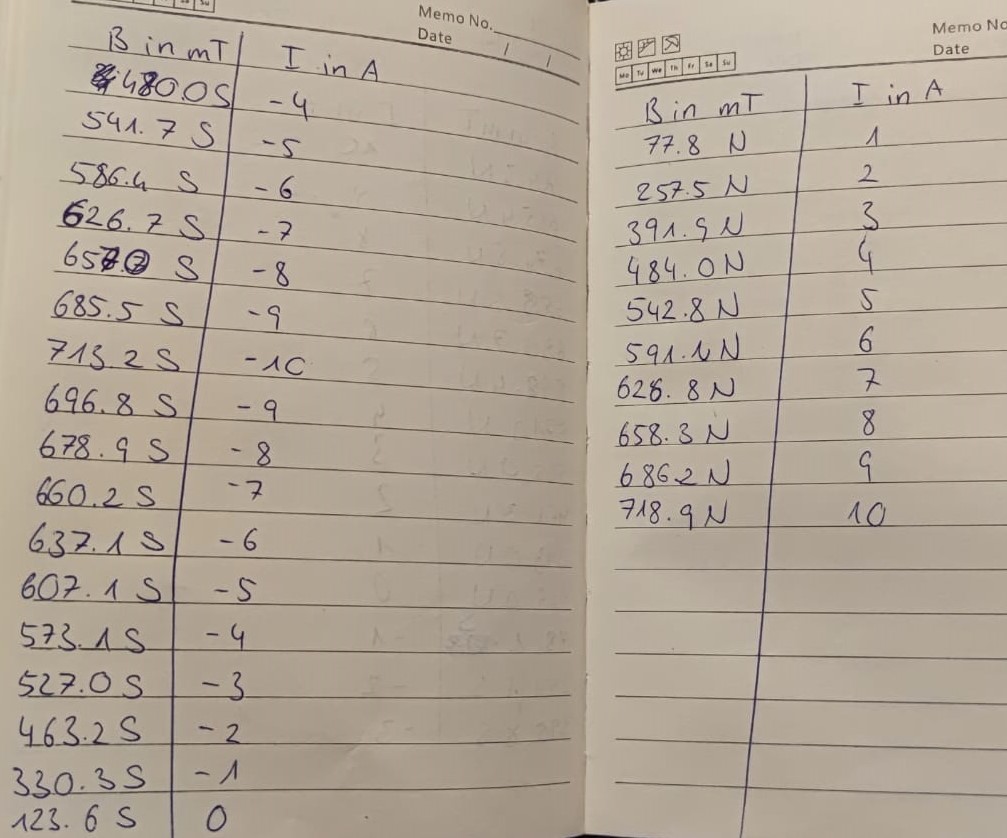 Memo No.
Date / /
B in mT I in A
480.0 S -4
541.7 S -5
586.4 S -6
626.7 S -7
S -8
685.5 S -9
713.2 S -10
696.8 S -9
678.9 S -8
660.2 S -7
637.1 S -6
607.1 S -5
573.1 S -4
527.0 S -3
463.2 S -2
330.3 S -1
123.6 S 0
Memo No
Date
Mo Tu We Th Fr Sa Su
B in mT I in A
77.8 N 1
257.5 N 2
391.9 N 3
484.0 N 4
542.8 N 5
591.1 N 6
626.8 N 7
658.3 N 8
686.2 N 9
718.9 N 10